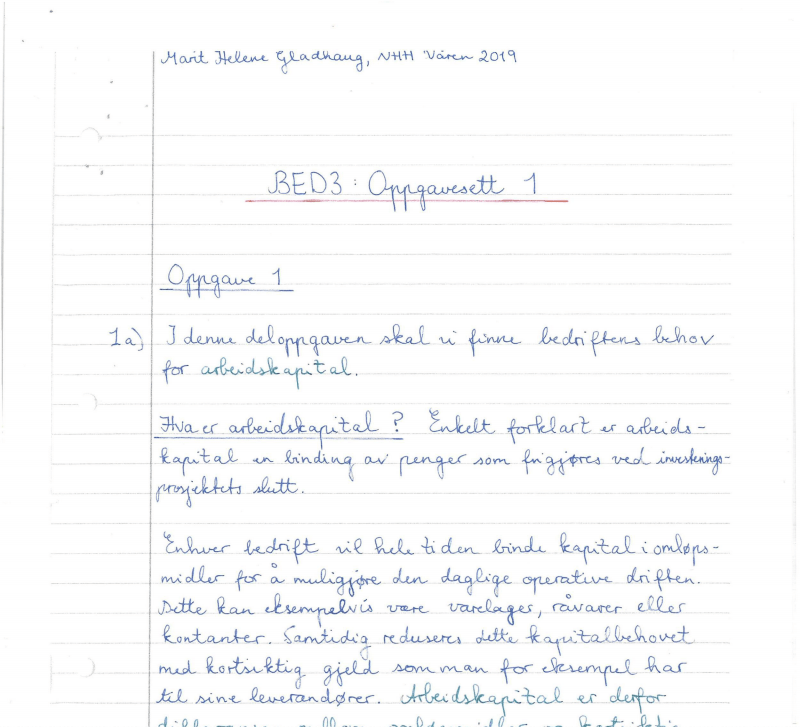 Marit Helene Gladhaug, NHH Våren 2019
BED3: Oppgavesett 1
Oppgave 1
1a) I denne deloppgaven skal vi finne bedriftens behov
for arbeidskapital.
Hva er arbeidskapital? Enkelt forklart er arbeids-
kapital en binding av penger som frigjøres ved investerings-
prosjektets slutt.
Enhver bedrift vil hele tiden binde kapital i omløps-
midler for å muligjøre den daglige operative driften.
Dette kan eksempelvis være varelager, råvarer eller
kontanter. Samtidig reduseres dette kapitalbehovet
med kortsiktig gjeld som man for eksempel har
til sine leverandører. Arbeidskapital er derfor